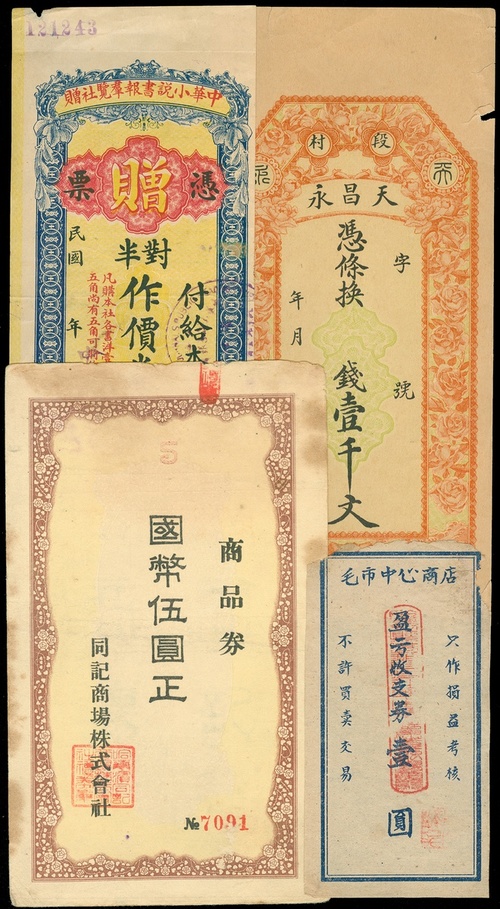 121243
中華小說書報羣覽社贈
憑贈票
付給本
對半作價
凡購本社各書洋
五角尚有五角可
民國 年
段村
天昌永
字 號
憑條換錢壹千文
年 月
5
商品券
國幣伍圓正
同記商場株式會社
№7091
毛市中心商店
只作損益考核
盈亏收支券壹圓
不許買卖交易